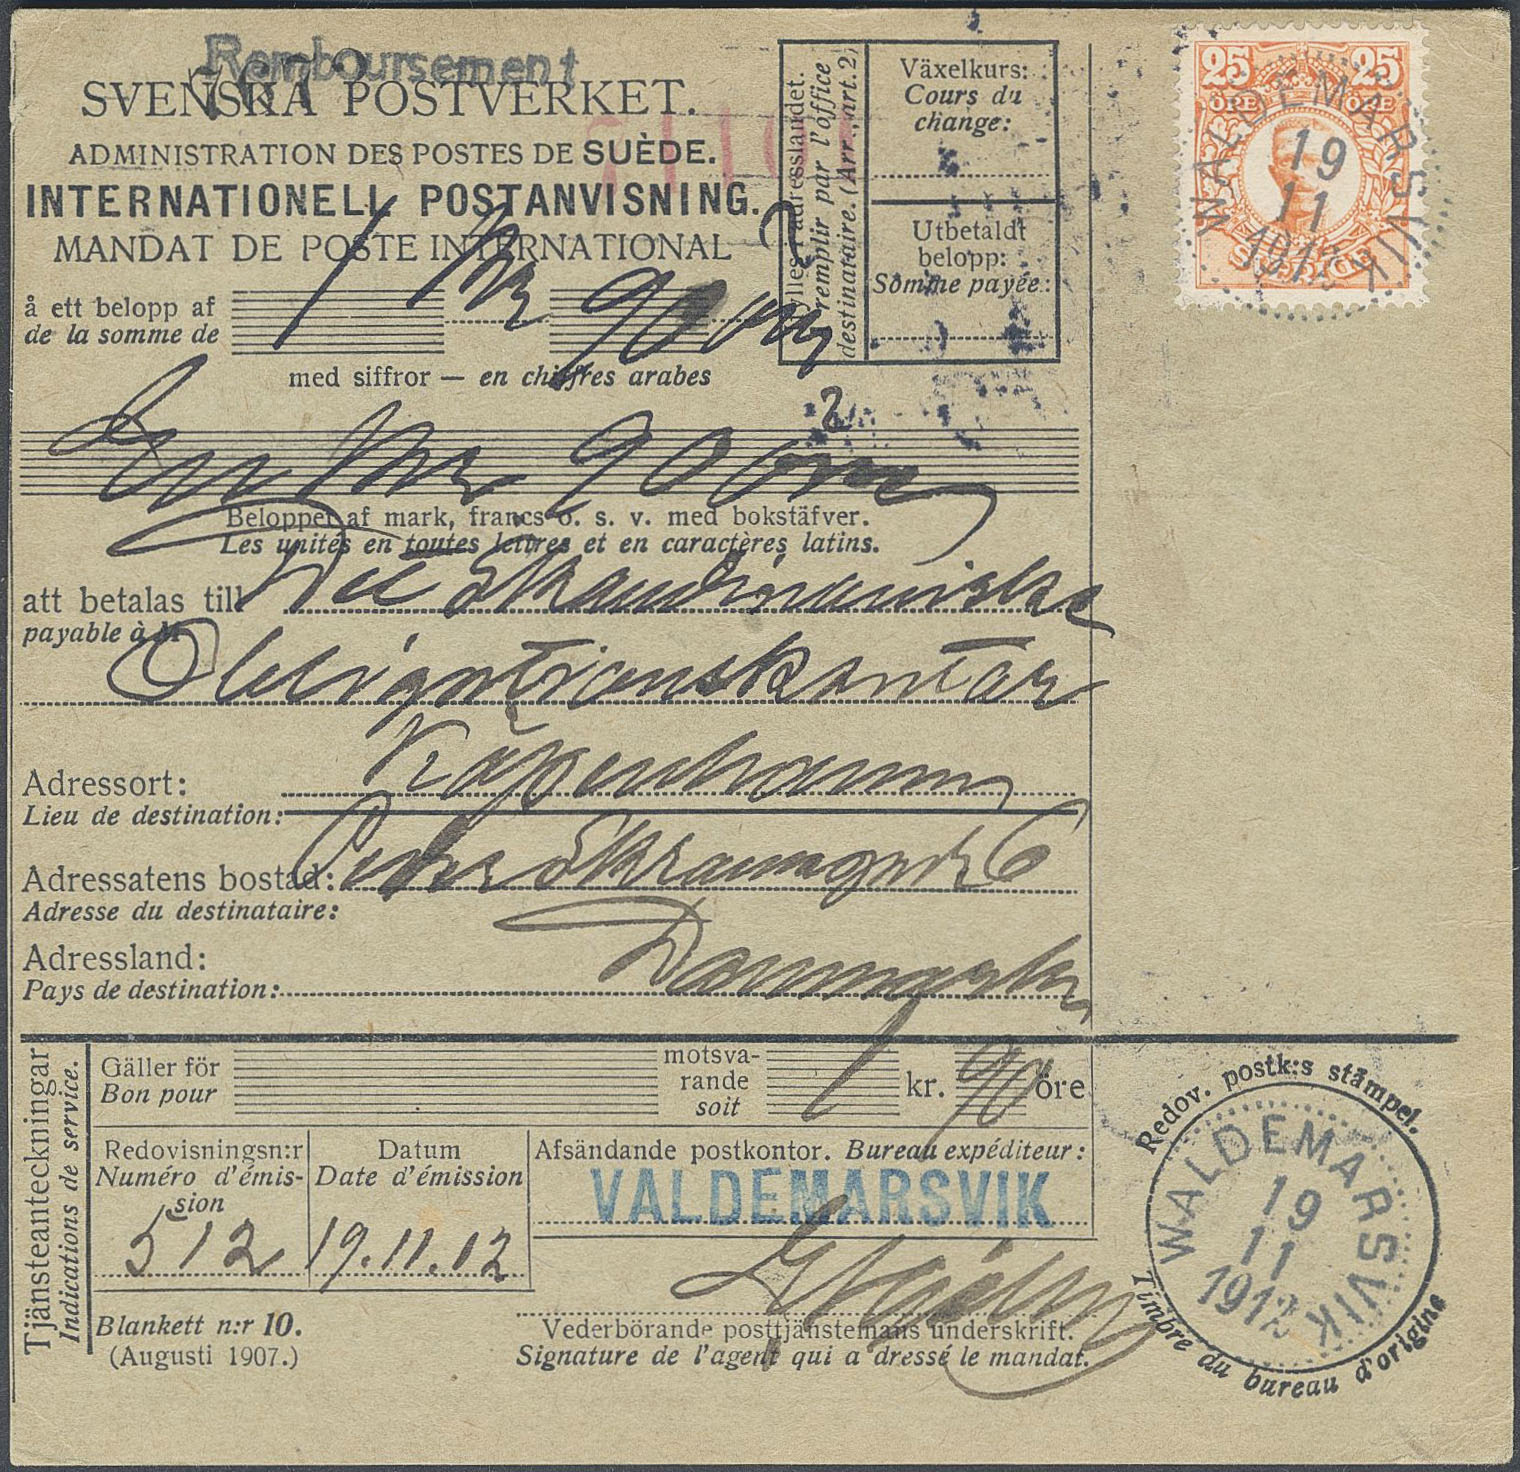 Remboursement
SVENSKA POSTVERKET.
ADMINISTRATION DES POSTES DE SUÈDE.
INTERNATIONELL POSTANVISNING.
MANDAT DE POSTE INTERNATIONAL
å ett belopp af
de la somme de
1 kr 90 öre
med siffror — en chiffres arabes
Ifylles i adresslandet.
A remplir par l'office
destinataire. (Arr., art. 2)
Växelkurs:
Cours du
change:
Utbetaldt
belopp:
Somme payée:
25 25
ÖRE ÖRE
SVERIGE
WALDEMARSVIK
19
11
1912
2
En kr 90 öre
Beloppet af mark, francs o. s. v. med bokstäfver.
Les unités en toutes lettres et en caractères latins.
att betalas till Det Skandinaviske
payable à M
Obligationskontor
Adressort: Köpenhamn
Lieu de destination:
Adressatens bostad: Peder Skramsgade 6
Adresse du destinataire:
Adressland: Danmark
Pays de destination:
Tjänsteanteckningar
Indications de service.
Gäller för
Bon pour
motsva-
rande
soit
1 kr. 90 öre
Redovisningsn:r
Numéro d'émis-
sion
512
Datum
Date d'émission
19.11.12
Afsändande postkontor. Bureau expéditeur:
VALDEMARSVIK
Vederbörande posttjänstemans underskrift.
Signature de l'agent qui a dressé le mandat.
Blankett n:r 10.
(Augusti 1907.)
Redov. postk:s stämpel.
WALDEMARSVIK
19
11
1912
Timbre du bureau d'origine